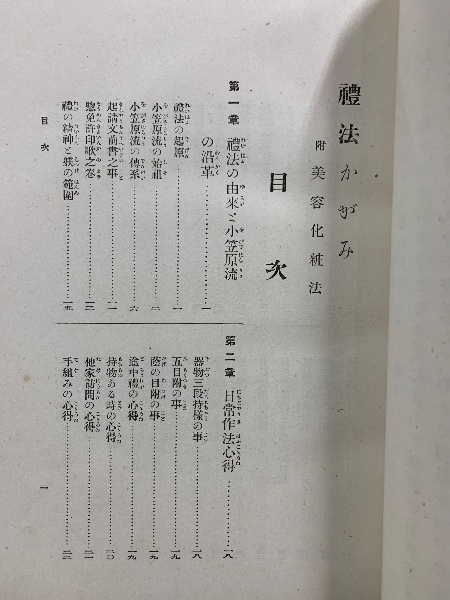 禮法かがみ
附 美容化粧法
目次
第一章 禮法の由來と小笠原流
の沿革…一
禮法の起原…一
小笠原流の始祖…二
小笠原流の傳系…六
起請文前書之事…一一
惣免許印歌之卷…一三
禮の精神と躾の範圍…一五
第二章 日常作法心得…一八
器物三段持樣の事…一八
五目附の事…一九
蔭の目附の事…一九
途中禮の心得…一九
持物ある時の心得…二〇
他家訪問の心得…二一
手組みの心得…二三
目次
一